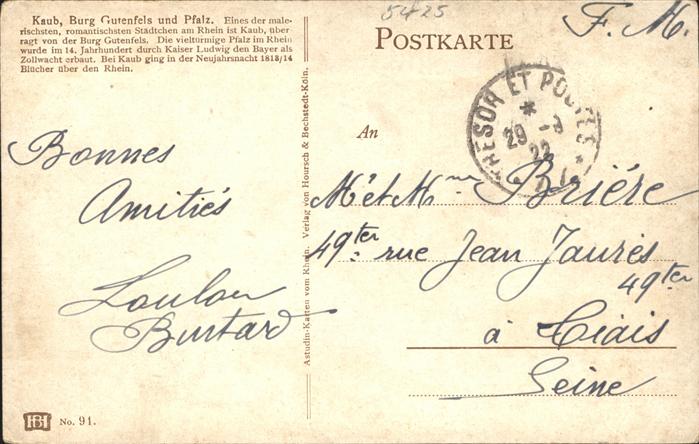 Kaub, Burg Gutenfels und Pfalz. Eines der male-
rischsten, romantischsten Städtchen am Rhein ist Kaub, über-
ragt von der Burg Gutenfels. Die vieltürmige Pfalz im Rhein
wurde im 14. Jahrhundert durch Kaiser Ludwig den Bayer als
Zollwacht erbaut. Bei Kaub ging in der Neujahrsnacht 1813/14
Blücher über den Rhein.
5425
F. M.
POSTKARTE
TRESOR ET POSTES
29
22
An
Bonnes
Amitiés
Loulou
Burtard
Astudin-Karten vom Rhein. Verlag von Hoursch & Bechstedt-Köln.
M et Mme Brière
49ter rue Jean Jaurès
49ter
à Thiais
Seine
HB No. 91.